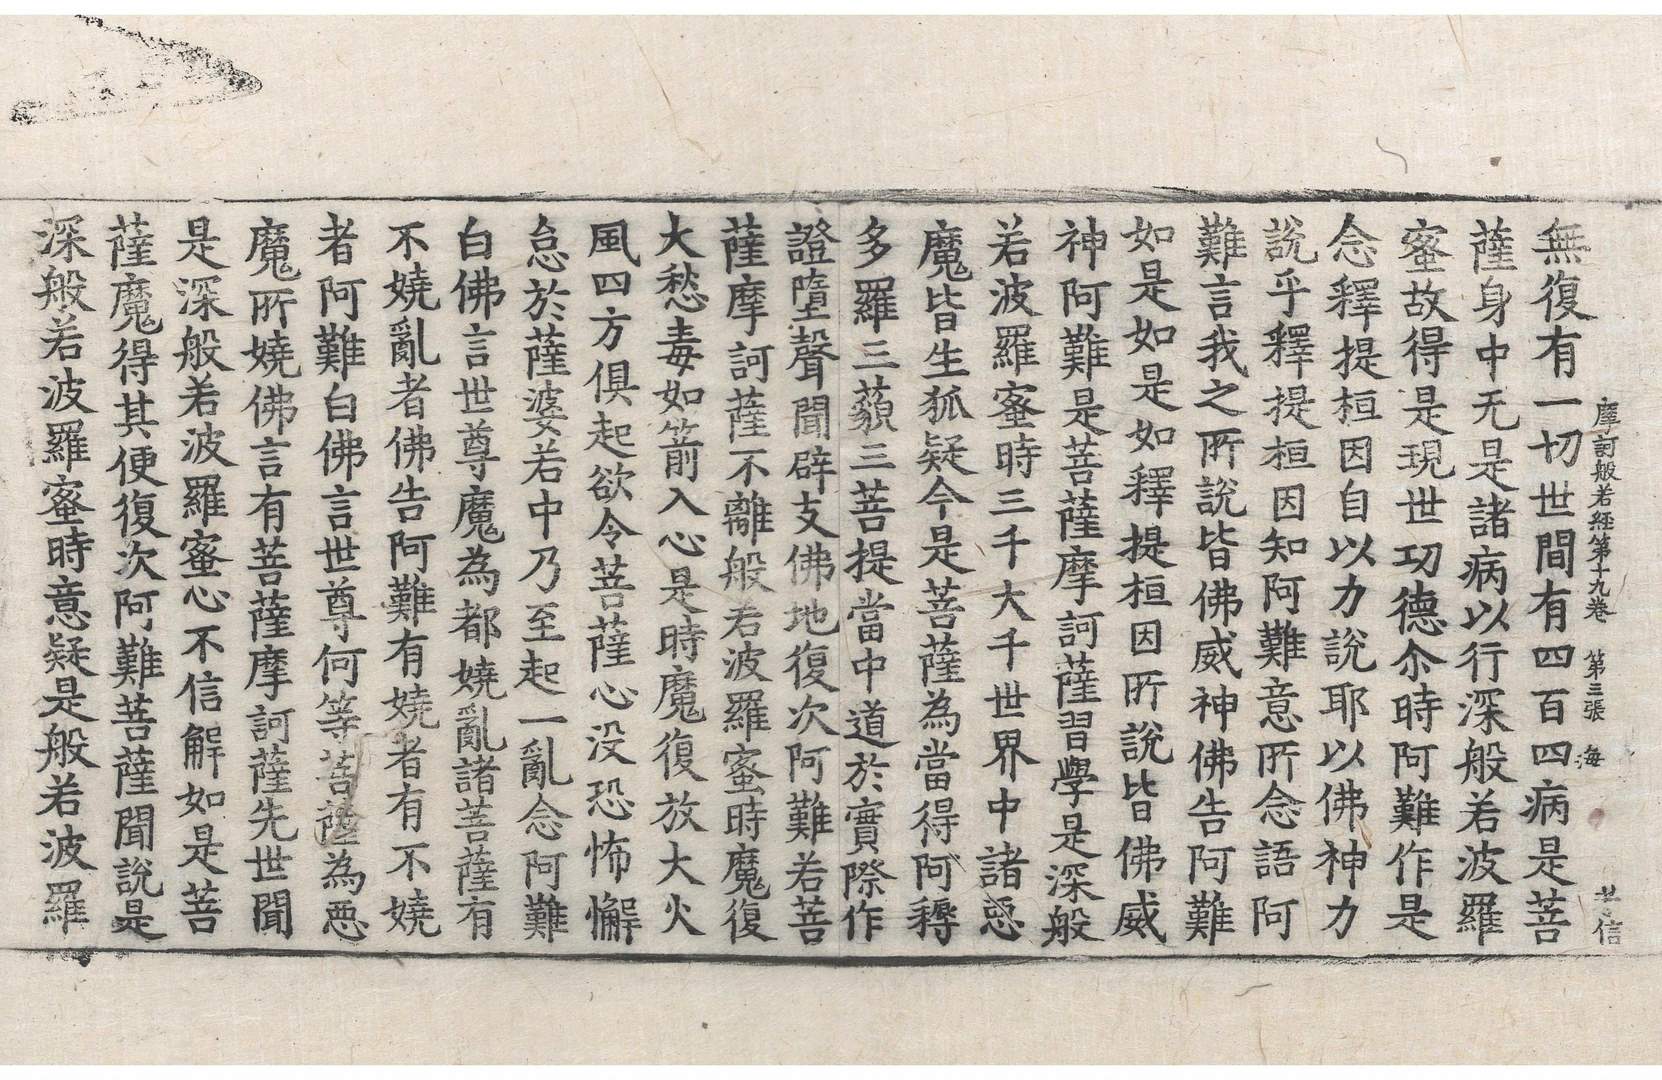 摩訶般若經第十九卷 第三張 海 信
無復有一切世間有四百四病是菩
薩身中无是諸病以行深般若波羅
蜜故得是現世功德尒時阿難作是
念釋提桓因自以力說耶以佛神力
說乎釋提桓因知阿難意所念語阿
難言我之所說皆佛威神佛告阿難
如是如是如釋提桓因所說皆佛威
神阿難是菩薩摩訶薩習學是深般
若波羅蜜時三千大千世界中諸惡
魔皆生狐疑今是菩薩為當得阿耨
多羅三藐三菩提當中道於實際作
證墮聲聞辟支佛地復次阿難若菩
薩摩訶薩不離般若波羅蜜時魔復
大愁毒如箭入心是時魔復放大火
風四方俱起欲令菩薩心没恐怖懈
怠於薩婆若中乃至起一亂念阿難
白佛言世尊魔為都嬈亂諸菩薩有
不嬈亂者佛告阿難有嬈者有不嬈
者阿難白佛言世尊何等菩薩為惡
魔所嬈佛言有菩薩摩訶薩先世聞
是深般若波羅蜜心不信解如是菩
薩魔得其便復次阿難菩薩聞說是
深般若波羅蜜時意疑是般若波羅